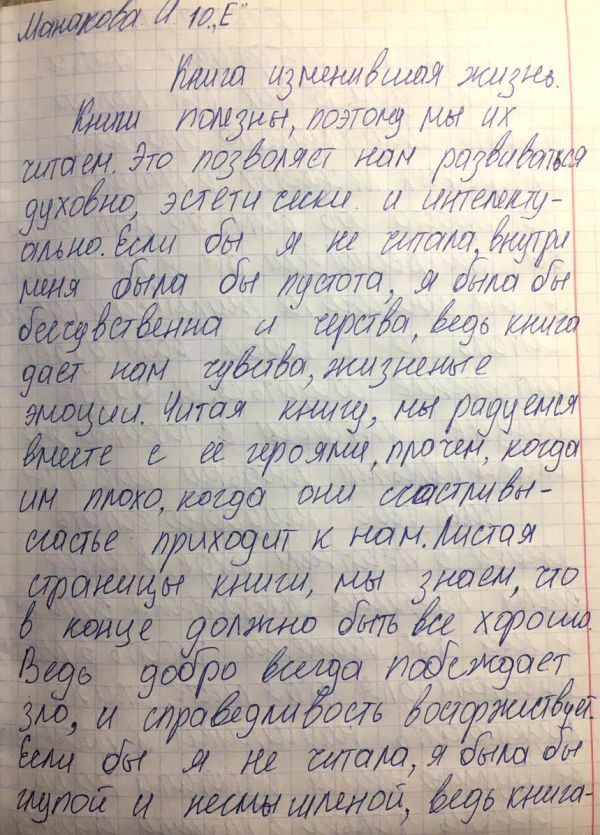 Манакова И 10 „Е"
Книга изменившая жизнь.
Книги полезны, поэтому мы их
читаем. Это позволяет нам развиваться
духовно, эстетически и интелекту-
ально. Если бы я не читала, внутри
меня была бы пустота, я была бы
бесчувственна и черства, ведь книга
дает нам чувства, жизненые
эмоции. Читая книгу, мы радуемся
вместе с ее героями, плачем, когда
им плохо, когда они счастливы-
счастье приходит к нам. Листая
страницы книги, мы знаем, что
в конце должно быть все хорошо.
Ведь добро всегда побеждает
зло, и справедливость восторжествует.
Если бы я не читала, я была бы
глупой и несмышленой, ведь книга-